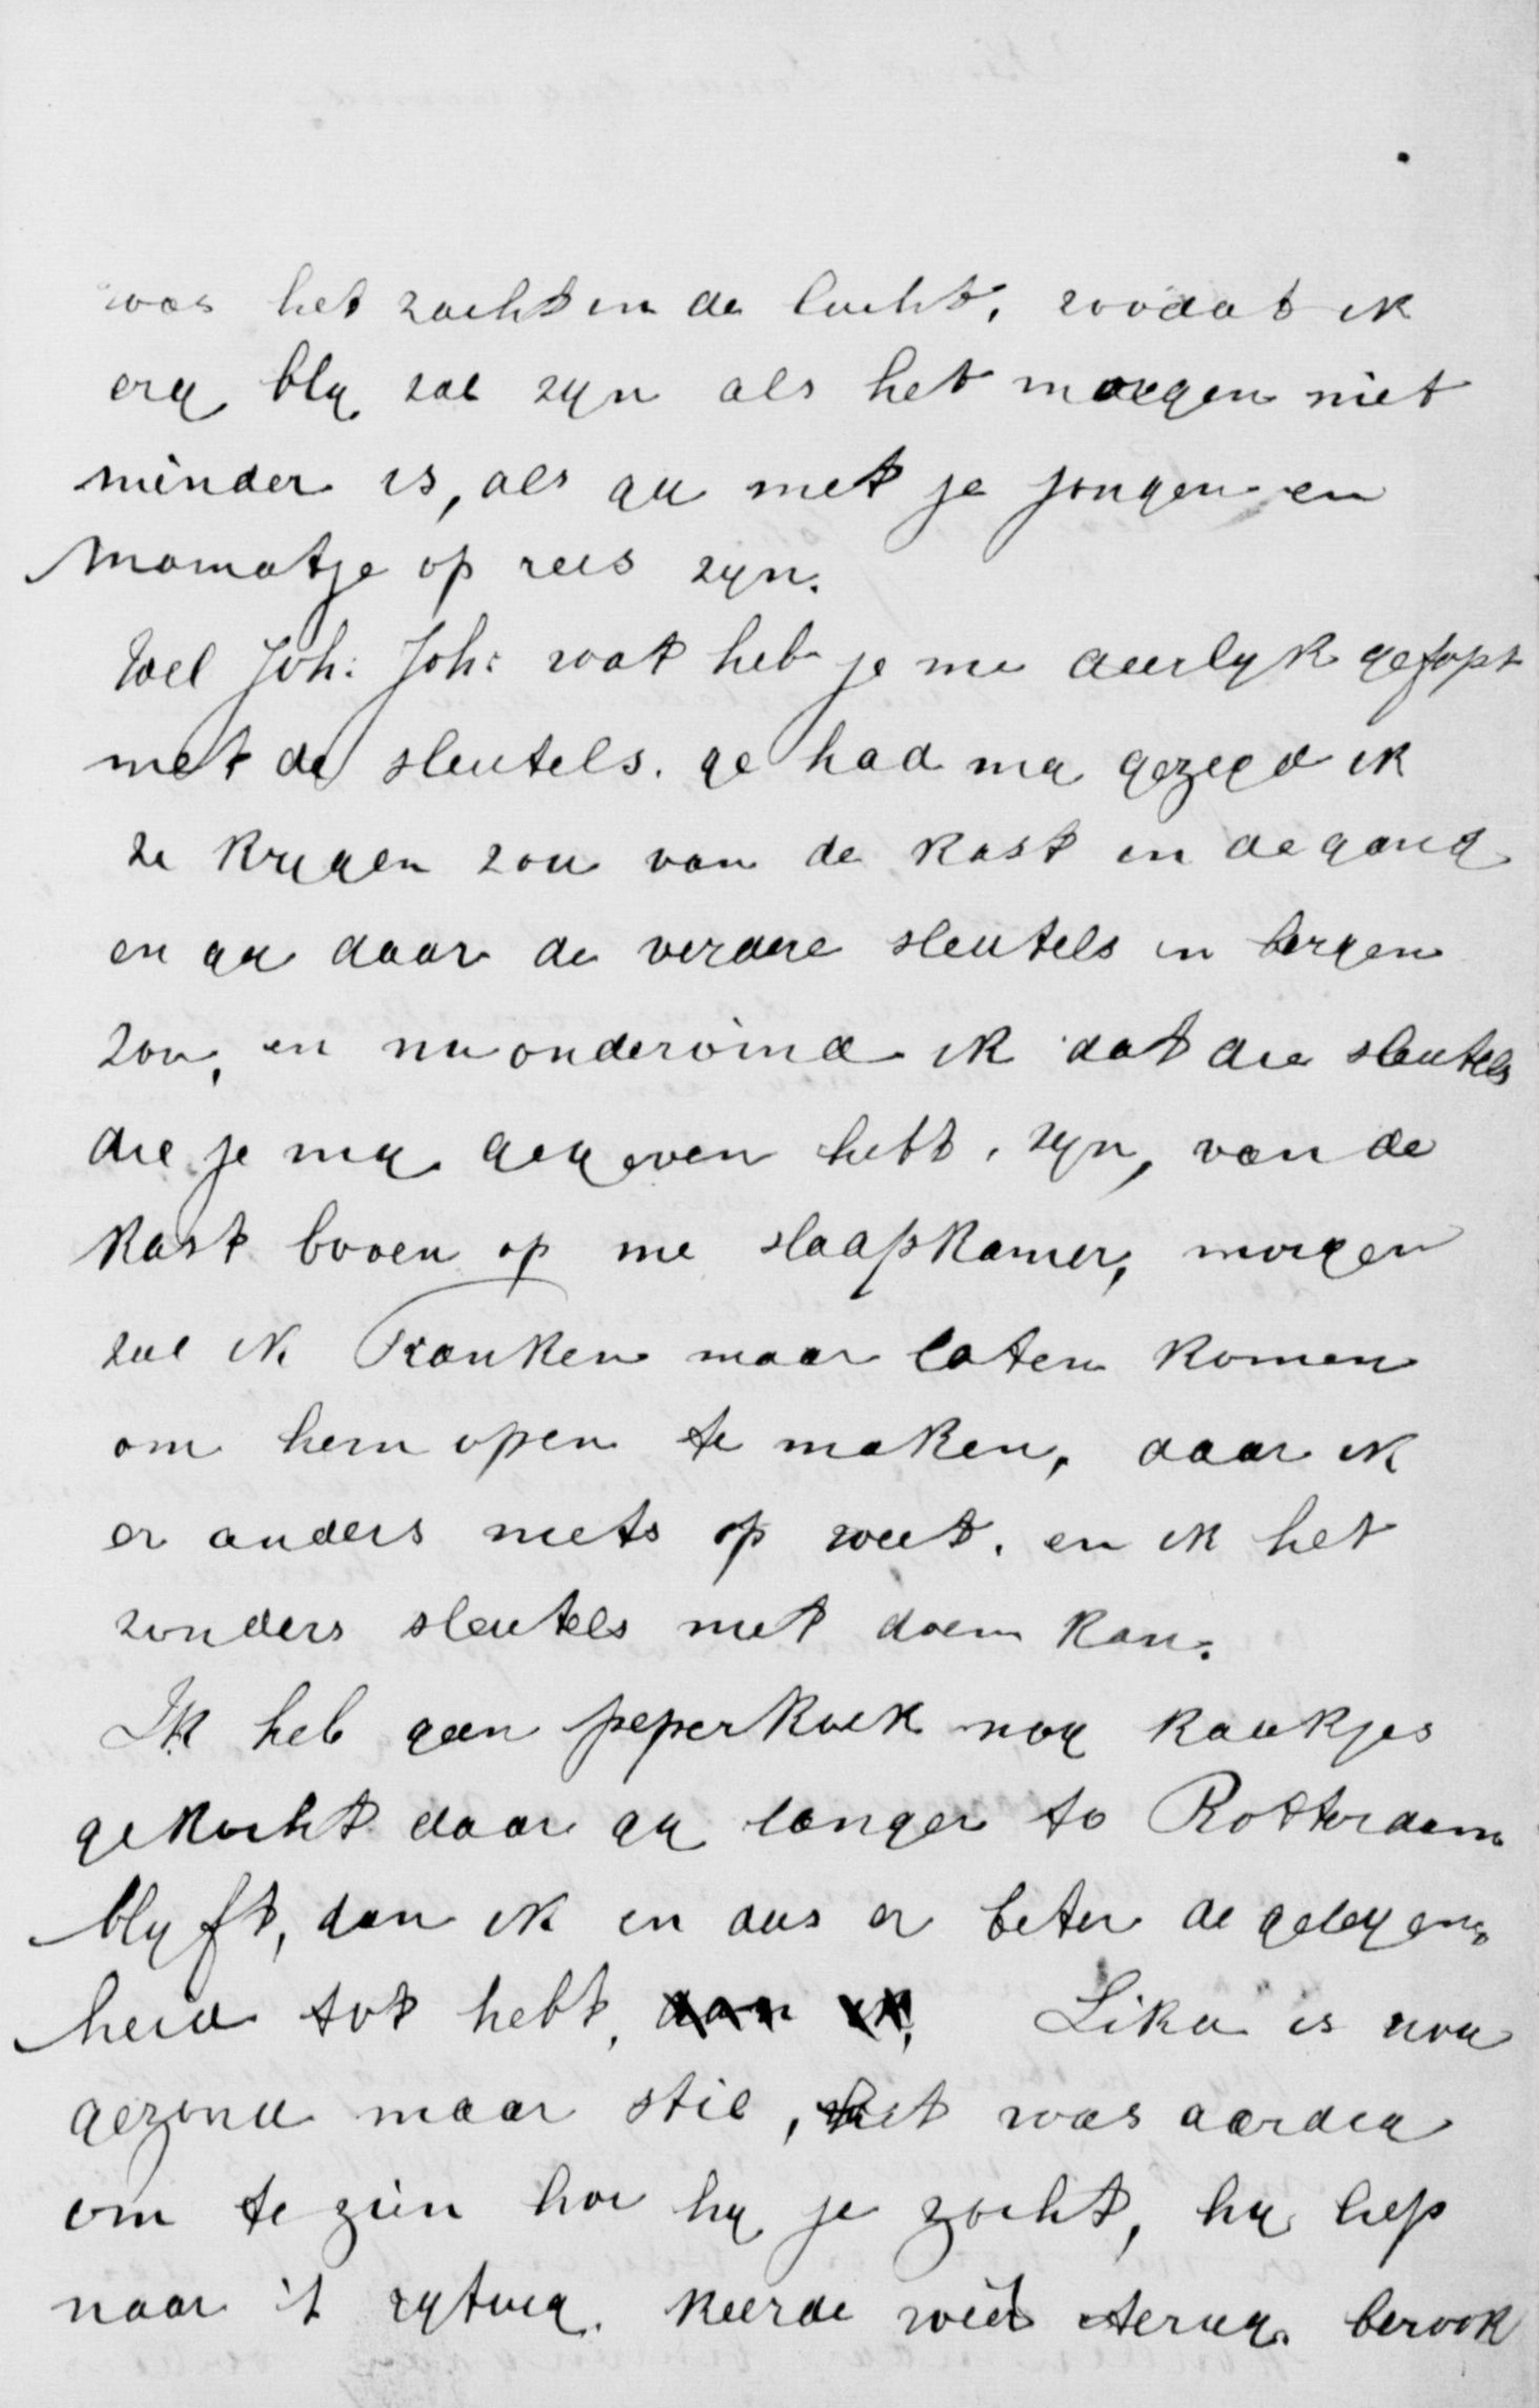 was het zacht in de lucht, zoodat ik
erg bly zal zyn als het morgen niet
minder is, als gy met je jongen en
Mamatje op reis zyn.
Wel Joh: Joh: wat heb je me deerlyk gefopt
met de sleutels. ge had my gezegd ik
ze krygen zou van de kast in de gang
en gy daar de verdere sleutels in bergen
zou, en nu ondervind ik dat die sleutels
die je my gegeven hebt, zyn, van de
kast boven op me slaapkamer, morgen
zal ik Franken maar laten komen
om hem open te maken, daar ik
er anders niets op weet. en ik het
zonders sleutels niet doen kan.
Ik heb geen peperkoek nog kaakjes
gekocht daar gy langer te Rotterdam
blyft, dan ik en dus er beter de gelegen=
heid tot hebt, dan ik, Lika is nou
gezond maar stil, het was aardig
om te zien hoe hy je zocht, hy liep
naar 't rytuig. keerde weer terug. berook